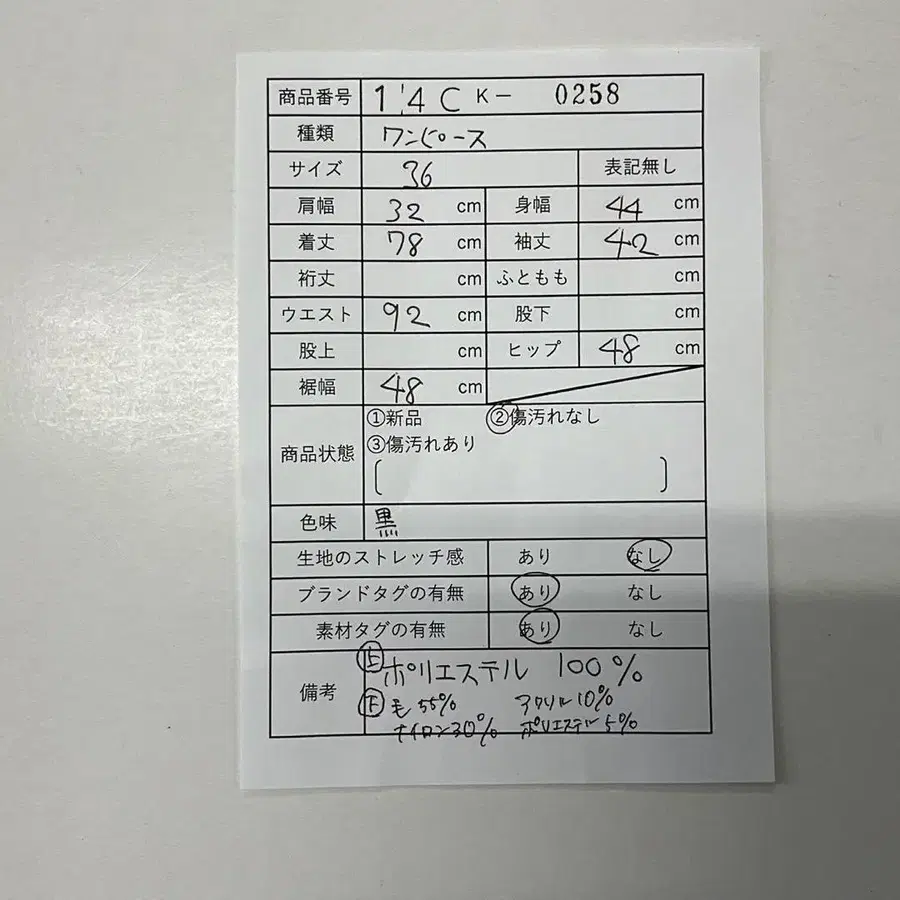 商品番号 1'4C K- 0258
種類 ワンピース
サイズ 36 表記無し
肩幅 32 cm 身幅 44 cm
着丈 78 cm 袖丈 42 cm
裄丈 cm ふともも cm
ウエスト 92 cm 股下 cm
股上 cm ヒップ 48 cm
裾幅 48 cm
商品状態 ①新品 ②傷汚れなし
③傷汚れあり
[ ]
色味 黒
生地のストレッチ感 あり なし
ブランドタグの有無 あり なし
素材タグの有無 あり なし
備考 上 ポリエステル 100%
下 毛 55% アクリル 10%
ナイロン 30% ポリエステル 5%